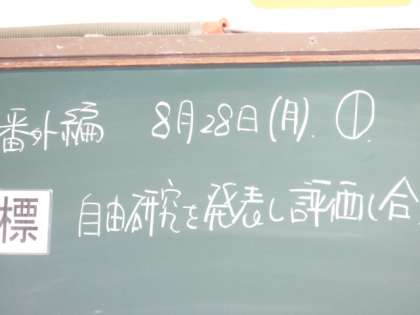 番外編 8月28日(月). ①.
標 自由研究を発表し評価し合